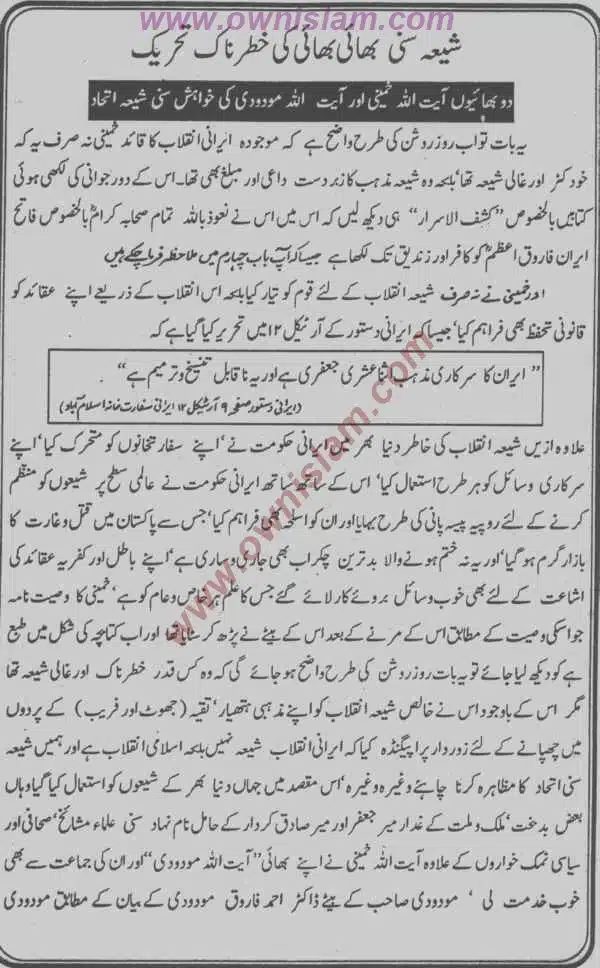 www.ownislam.com
شیعہ سنی بھائی بھائی کی خطرناک تحریک
دو بھائیوں آیت اللہ خمینی اور آیت اللہ مودودی کی خواہش سنی شیعہ اتحاد
یہ بات تو اب روز روشن کی طرح واضح ہے کہ موجودہ ایرانی انقلاب کا قائد خمینی نہ صرف یہ کہ
خود کٹر اور غالی شیعہ تھا‘ بلکہ وہ شیعہ مذہب کا زبردست داعی اور مبلغ بھی تھا۔ اس کے دور جوانی کی لکھی ہوئی
کتابیں بالخصوص ”کشف الاسرار“ ہی دیکھ لیں کہ اس میں اس نے نعوذ باللہ تمام صحابہ کرامؓ بالخصوص فاتح
ایران فاروق اعظمؓ کو کافر اور زندیق تک لکھا ہے جیسا کہ آپ باب چہارم میں ملاحظہ فرما چکے ہیں
اور خمینی نے نہ صرف شیعہ انقلاب کے لئے قوم کو تیار کیا بلکہ اس انقلاب کے ذریعے اپنے عقائد کو
قانونی تحفظ بھی فراہم کیا‘ جیسا کہ ایرانی دستور کے آرٹیکل ۱۲ میں تحریر کیا گیا ہے کہ
”ایران کا سرکاری مذہب اثنا عشری جعفری ہے اور یہ ناقابل تنسیخ و ترمیم ہے“۔
(ایرانی دستور صفحہ ۹ آرٹیکل ۱۲ ایرانی سفارت خانہ اسلام آباد)
علاوہ ازیں شیعہ انقلاب کی خاطر دنیا بھر میں ایرانی حکومت نے‘ اپنے سفارتخانوں کو متحرک کیا‘ اپنے
سرکاری وسائل کو ہر طرح استعمال کیا‘ اس کے ساتھ ساتھ ایرانی حکومت نے عالمی سطح پر شیعوں کو منظم
کرنے کے لئے روپیہ پیسہ پانی کی طرح بہایا اور ان کو اسلحہ بھی فراہم کیا‘ جس سے پاکستان میں قتل و غارت کا
بازار گرم ہو گیا‘ اور یہ نہ ختم ہونے والا بدترین چکر اب بھی جاری و ساری ہے‘ اپنے باطل اور کفریہ عقائد کی
اشاعت کے لئے بھی خوب وسائل بروئے کار لائے گئے جس کا علم ہر خاص و عام کو ہے‘ خمینی کا وصیت نامہ
جو اسکی وصیت کے مطابق اس کے مرنے کے بعد اس کے بیٹے نے پڑھ کر سنایا تھا اور اب کتابچہ کی شکل میں طبع
ہے کو دیکھ لیا جائے تو یہ بات روز روشن کی طرح واضح ہو جائے گی کہ وہ کس قدر خطرناک اور غالی شیعہ تھا
مگر اس کے باوجود اس نے خالص شیعہ انقلاب کو اپنے مذہبی ہتھیار‘ تقیہ (جھوٹ اور فریب) کے پردوں
میں چھپانے کے لئے زوردار پراپیگنڈہ کیا کہ ایرانی انقلاب شیعہ نہیں بلکہ اسلامی انقلاب ہے اور ہمیں شیعہ
سنی اتحاد کا مظاہرہ کرنا چاہئے وغیرہ وغیرہ‘ اس مقصد میں جہاں دنیا بھر کے شیعوں کو استعمال کیا گیا وہاں
بعض بدبخت‘ ملک و ملت کے غدار میر جعفر اور میر صادق کردار کے حامل نام نہاد سنی علماء مشائخ‘ صحافی اور
سیاسی نمک خواروں کے علاوہ آیت اللہ خمینی نے اپنے بھائی ”آیت اللہ مودودی“ اور ان کی جماعت سے بھی
خوب خدمت لی‘ مودودی صاحب کے بیٹے ڈاکٹر احمد فاروق مودودی کے بیان کے مطابق مودودی
www.ownislam.com